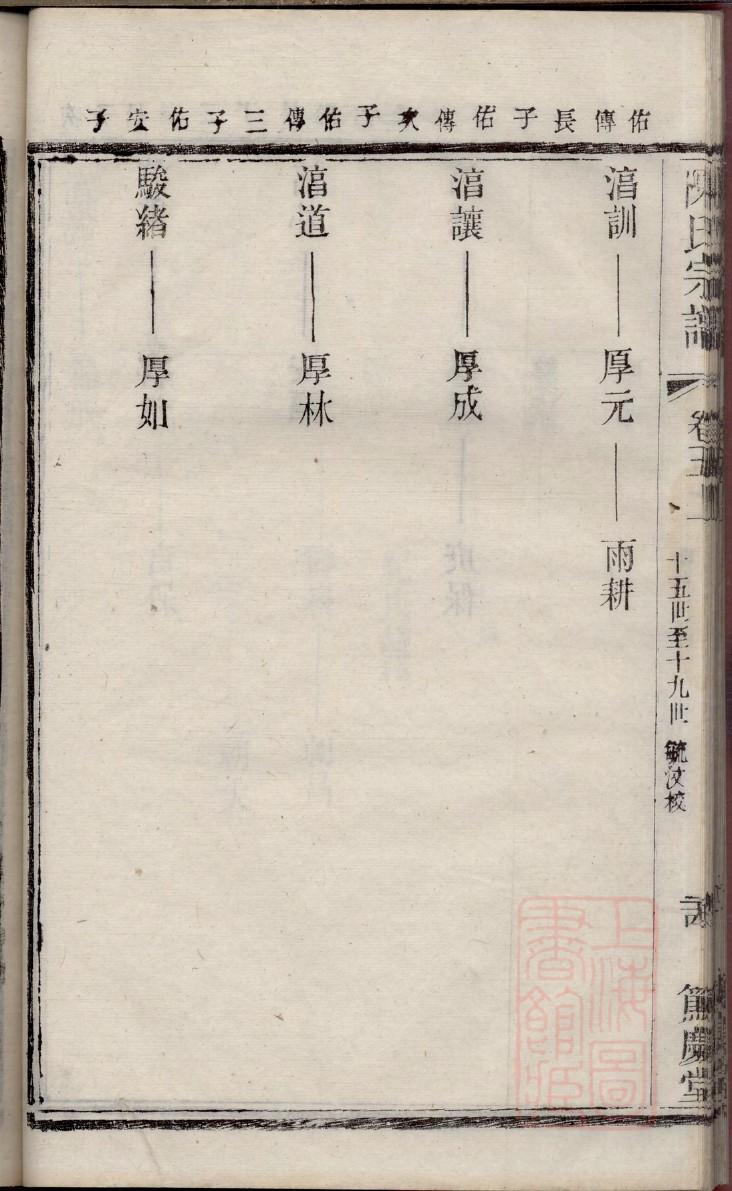 佑傳長子 佑傳次子 佑傳三子 佑安子
湻訓 厚元 雨耕
湻讓 厚成
湻道 厚林
駿緒 厚如
陳氏宗譜
卷五上
十五世至十九世
毓汶校
篤慶堂
上海圖
書館臧